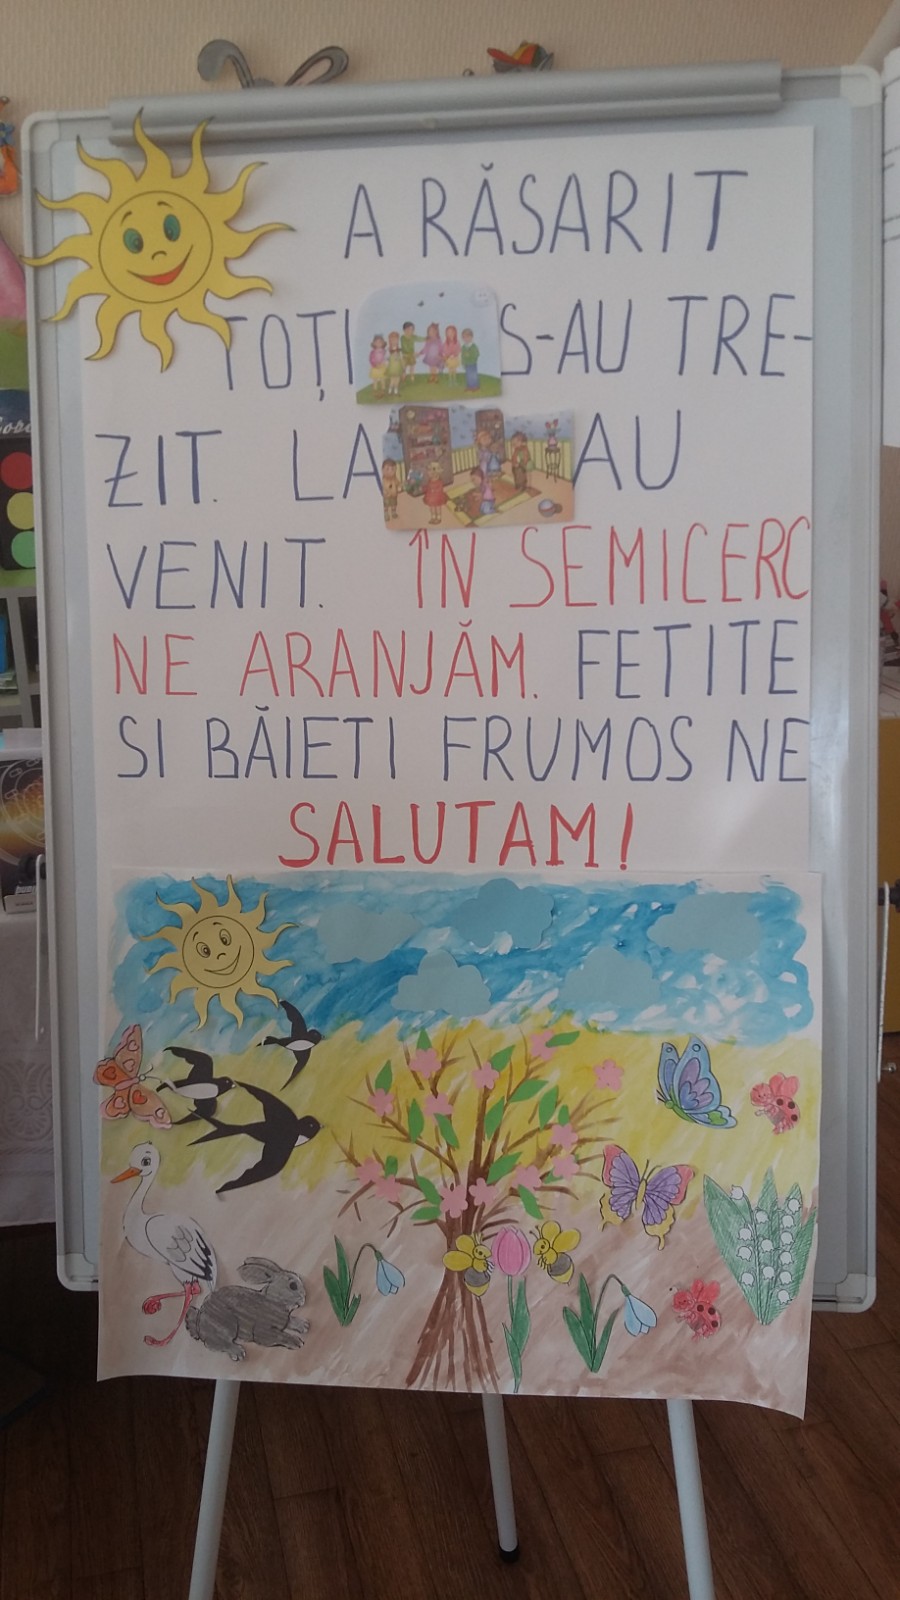 A RĂSARIT
TOȚI S-AU TRE-
ZIT. LA AU
VENIT. ÎN SEMICERC
NE ARANJĂM. FETITE
SI BĂIETI FRUMOS NE
SALUTAM!